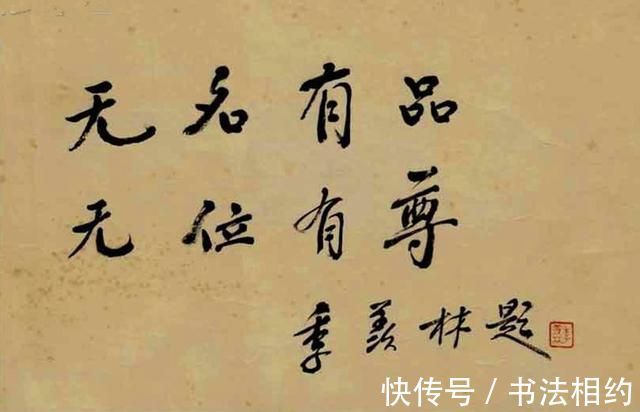 无名有品
无位有尊
季羡林题
快传号 / 书法相约